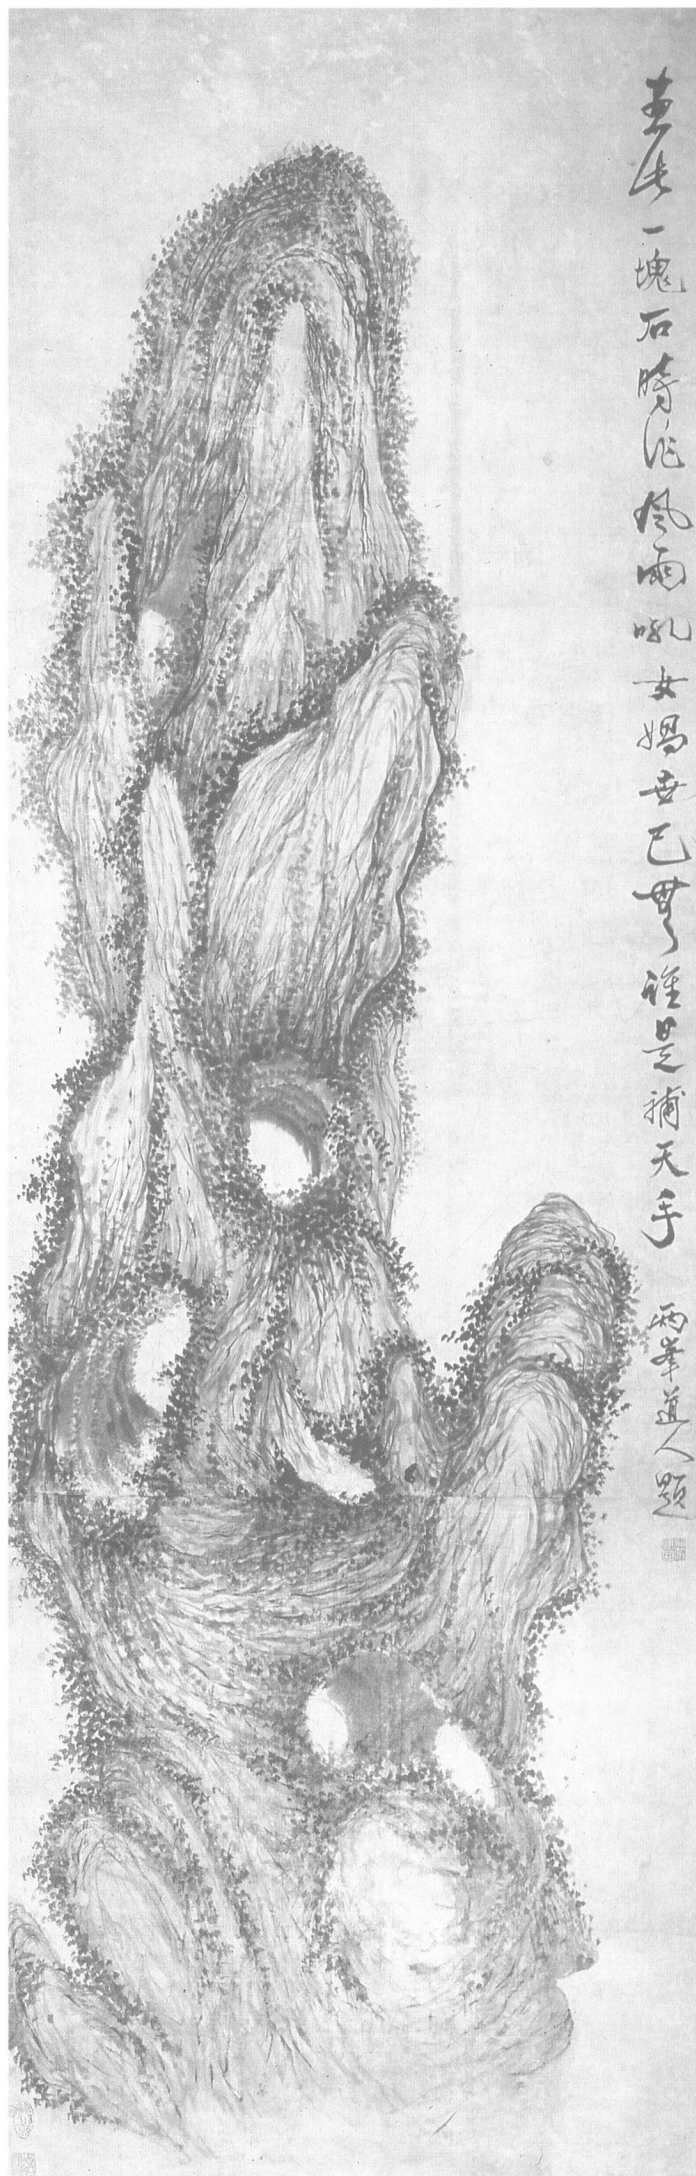 畫此一塊石時作風雨吼女媧世已無誰是補天手 兩峯道人題